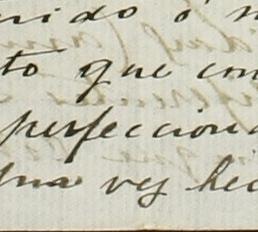 rido ó
to que con
perfecciona
una vez hec